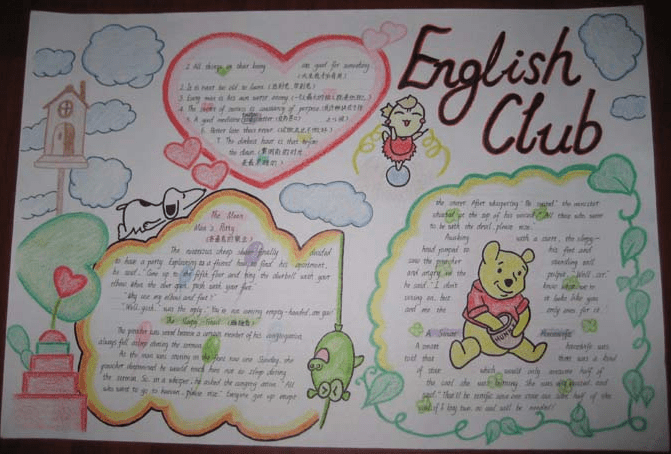 English
Club
1. All things in their being are good for something.
2. It is never too old to learn. (活到老,学到老)
3. Every man is his own worst enemy. (一个人最大的敌人就是他自己)
4. The secret of success is constancy of purpose.
5. A good medicine tastes bitter
6. Better late than never.
7. The darkest hour is that before
the dawn. (黎明前的时分
是最黑暗的)
The Mean
Man's Party
The notorious cheap skate finally decided
to have a party. Explaining to a friend how to find his apartment,
he said, "Come up to the fifth floor and ring the doorbell with your
elbow. When the door open, push with your foot."
"Why use my elbow and foot?"
"Well, gosh," was the reply, "You're not coming empty-handed, are you?
The Sleeping
The preacher was vexed because a certain member of his congregation
always fell asleep during the sermon.
As the man was snoring in the front row one Sunday, the
preacher determined he would teach him not to sleep during
the sermon. So, in a whisper, he asked the congregation. "All
who want to go to heaven, please rise." Everyone got up except
the snorer. After whispering "Be seated", the minister
shouted at the top of his voice, "All those who want
to be with the devil, please rise."
Awaking with a start, the sleepy-
head jumped to his feet and
saw the preacher standing tall
and angry in the pulpit. "Well, sir,"
he said, "I don't know what we're
voting on, but it looks like you
and me are the only ones for it.
A Smart Housewife
A smart housewife was
told that there was a kind
of stove which would only consume half of
the coal she was burning. She was very excited, and
said: "That'll be terrific! Since one stove can save half of the
coal, if I buy two, no coal will be needed!"
HUNNY